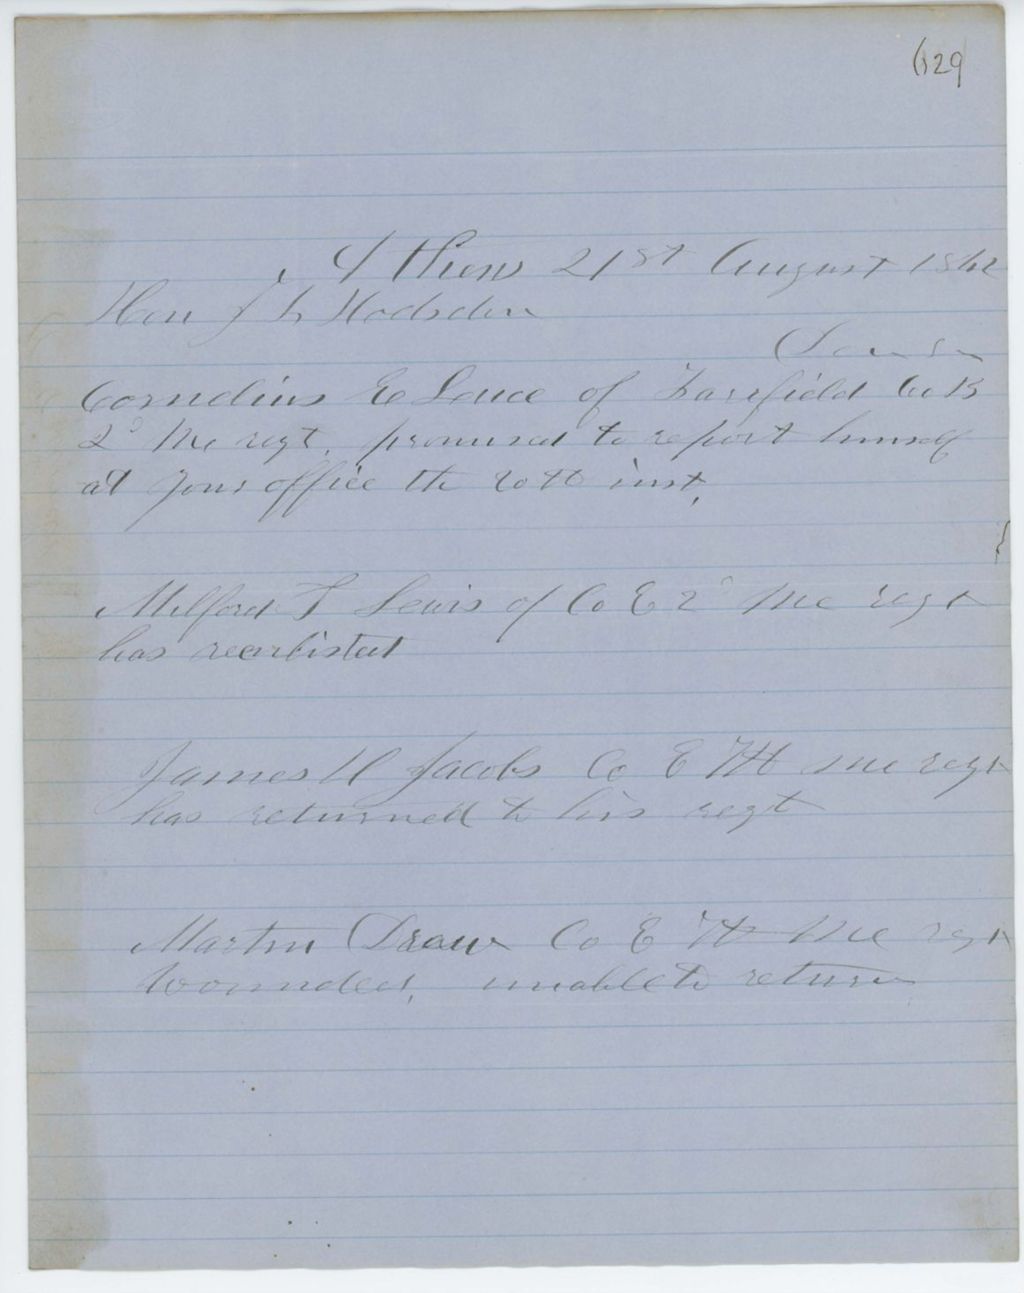 129
Athens 21st August 1862
Hon J L Hodsdon
Cornelius E Luce of Fairfield Co B
2d Me regt. promised to report himself
at your office the 20th inst,
Milford T Lewis of Co E 2d Me regt
has reenlisted
James H Jacobs Co E 7th Me regt
has returned to his regt
Martin Drew Co E 7th Me regt
wounded, unable to return